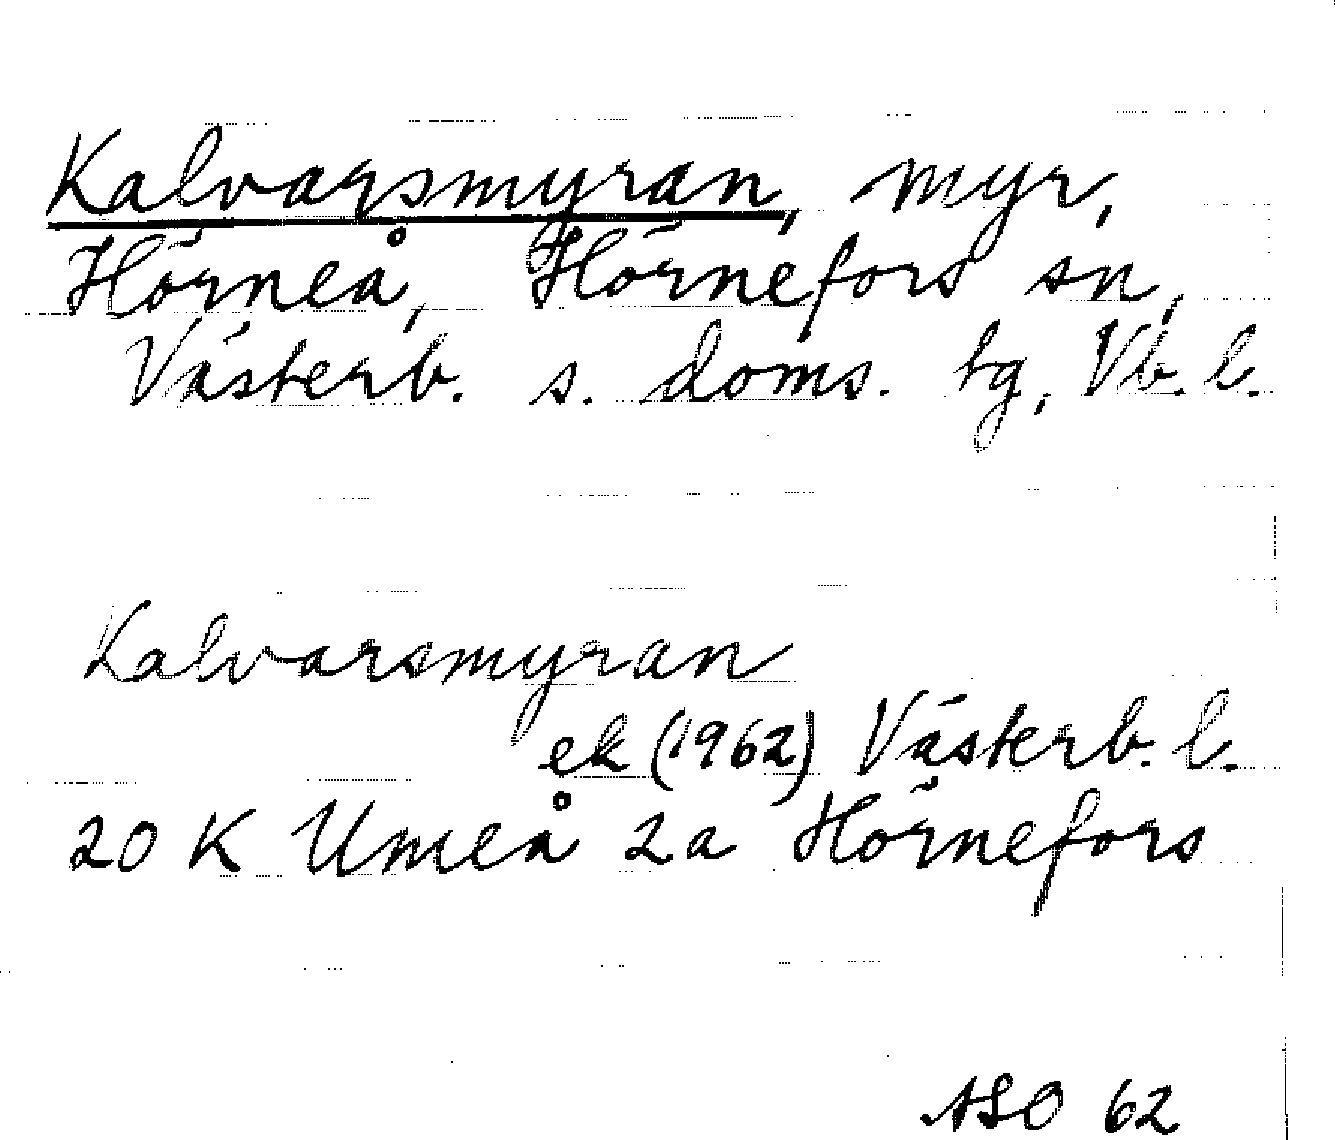 Kalvarsmyran, myr,
Hörneå, Hörnefors sn,
Västerb. s. doms. tg, Vb. l.
Kalvarsmyran
ek (1962) Västerb. l.
20 K Umeå 2a Hörnefors
ASO 62